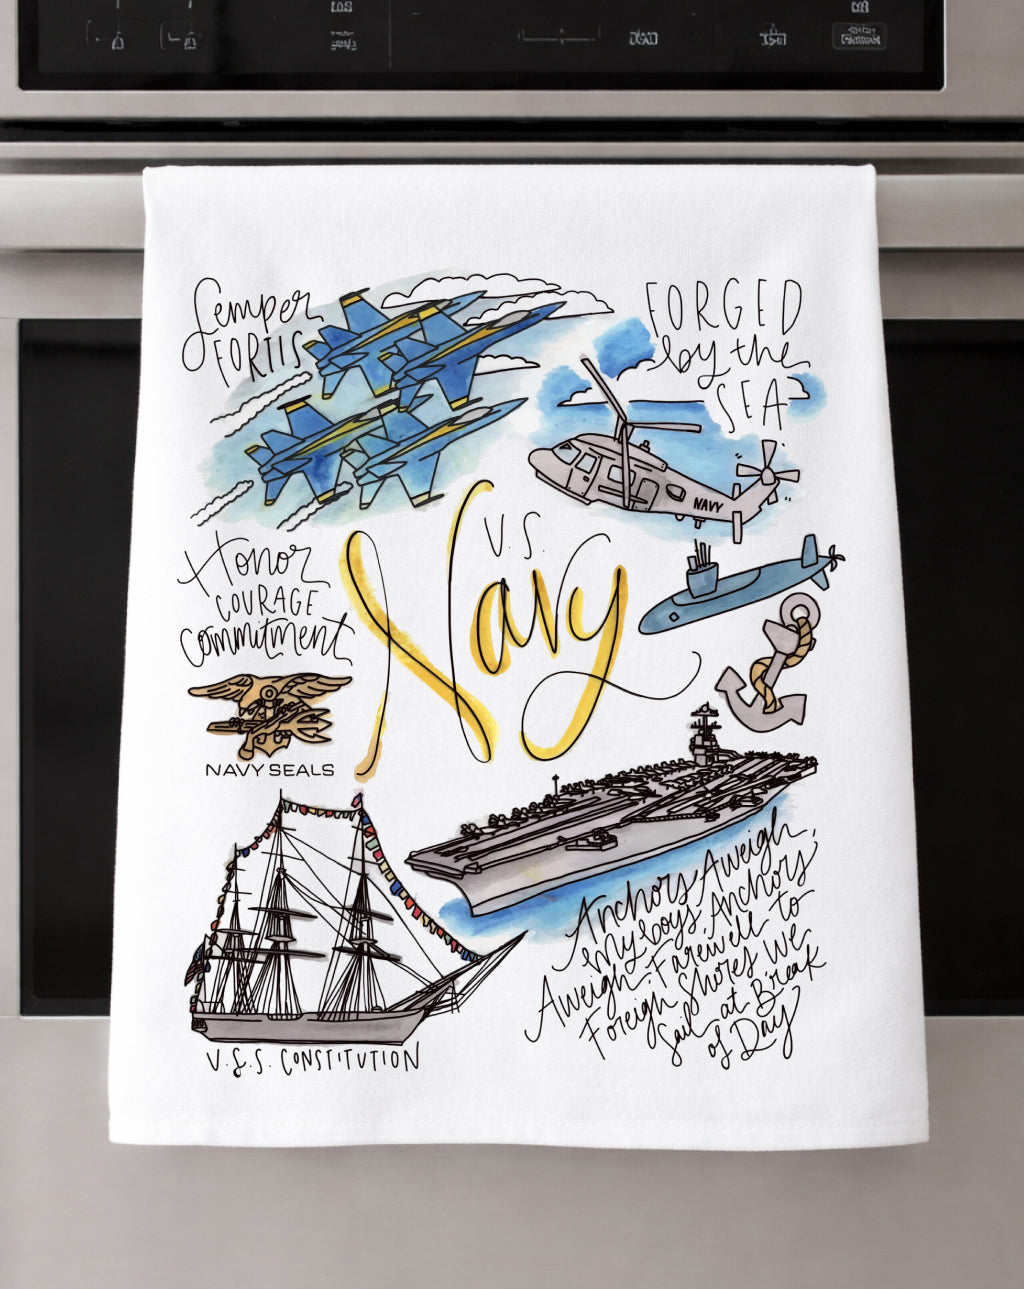 Semper
FORTIS
FORGED
by the
SEA
NAVY
U.S.
Navy
Honor
COURAGE
Commitment
NAVY SEALS
U.S.S. CONSTITUTION
Anchors Aweigh,
my boys, Anchors
Aweigh. Farewell to
Foreign Shores We
Sail at Break
of Day